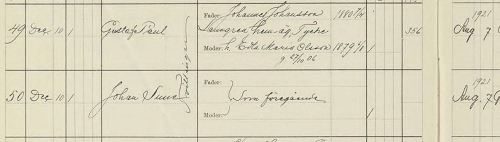 Fader: Johannes Johansson 1880 7/4
1921
49 Dec 10 1 Gustaf Paul
äg. Tycke
356 Aug 7
Moder: h. Edla Maria Olsson 1879 1
g 27/10 06
Tvillingar
1921
Fader:
50 Dec 10 1 Johan Sune Som föregående
Aug. 7
Moder: 1